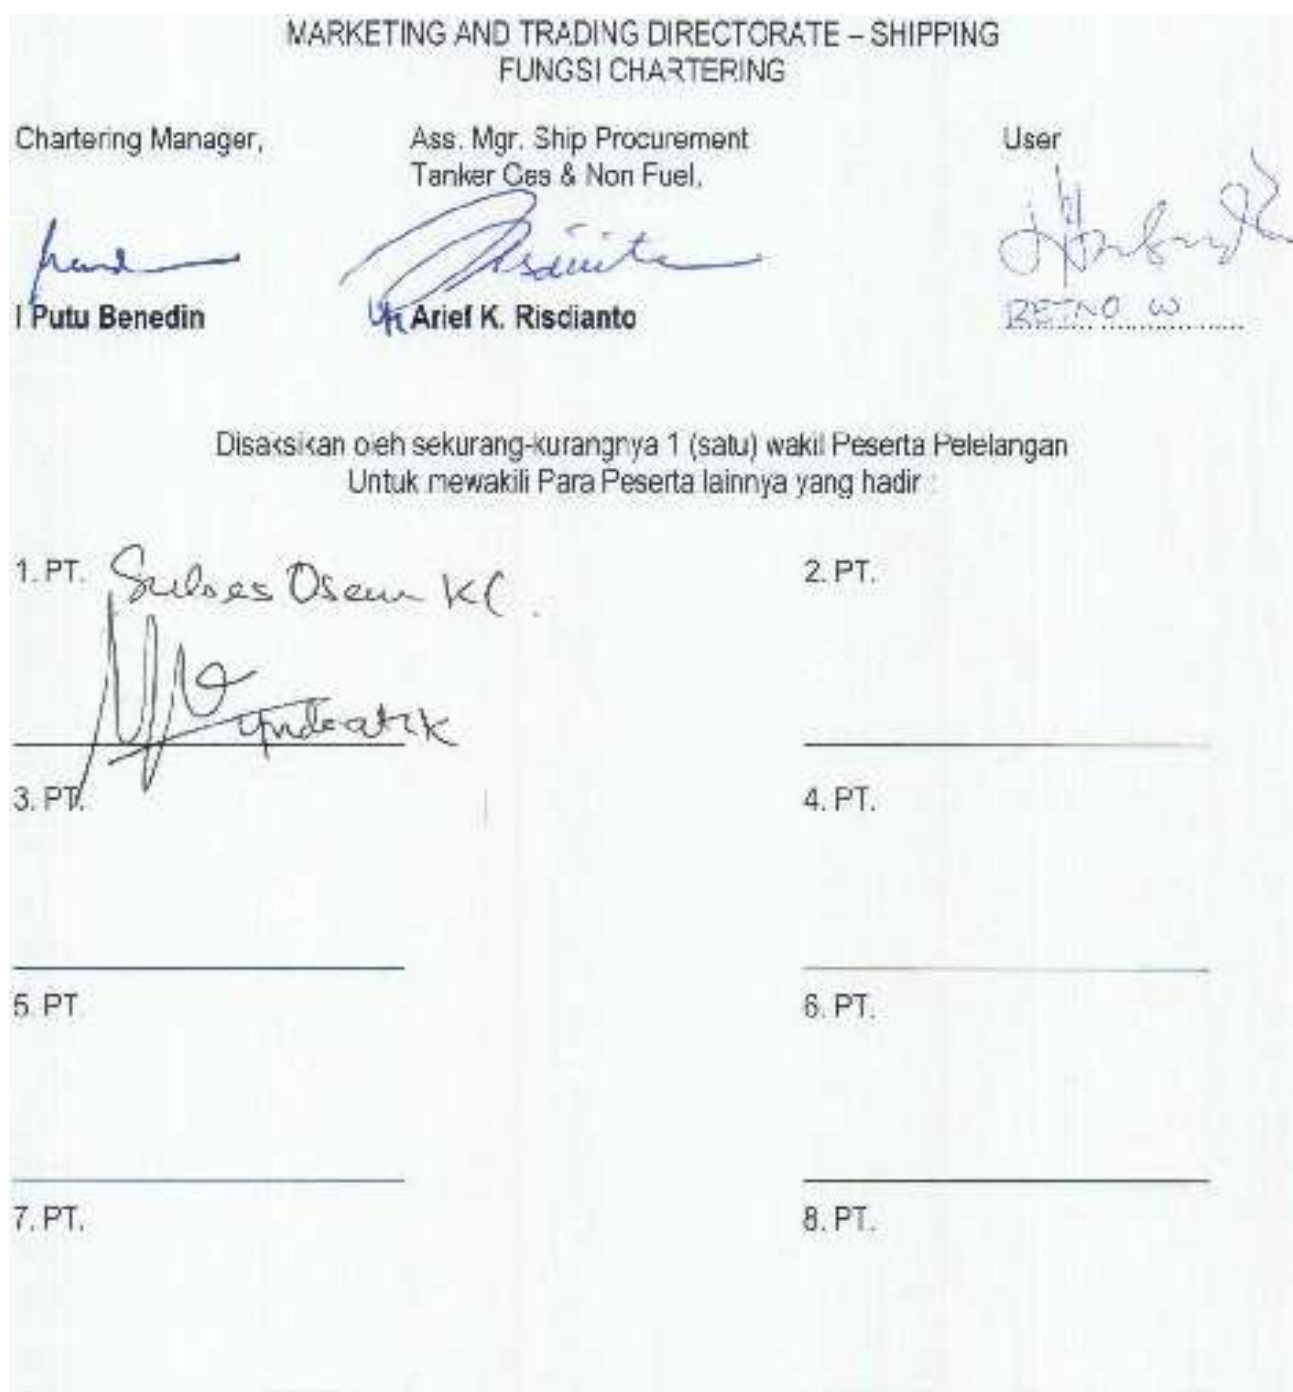 MARKETING AND TRADING DIRECTORATE – SHIPPING
FUNGSI CHARTERING
Chartering Manager, Ass. Mgr. Ship Procurement User
Tanker Gas & Non Fuel,
I Putu Benedin Arief K. Riscianto RETNO W
Disaksikan oleh sekurang-kurangnya 1 (satu) wakil Peserta Pelelangan
Untuk mewakili Para Peserta lainnya yang hadir :
1. PT. Sukses Osean KC. 2. PT.
3. PT. 4. PT.
5. PT. 6. PT.
7. PT. 8. PT.